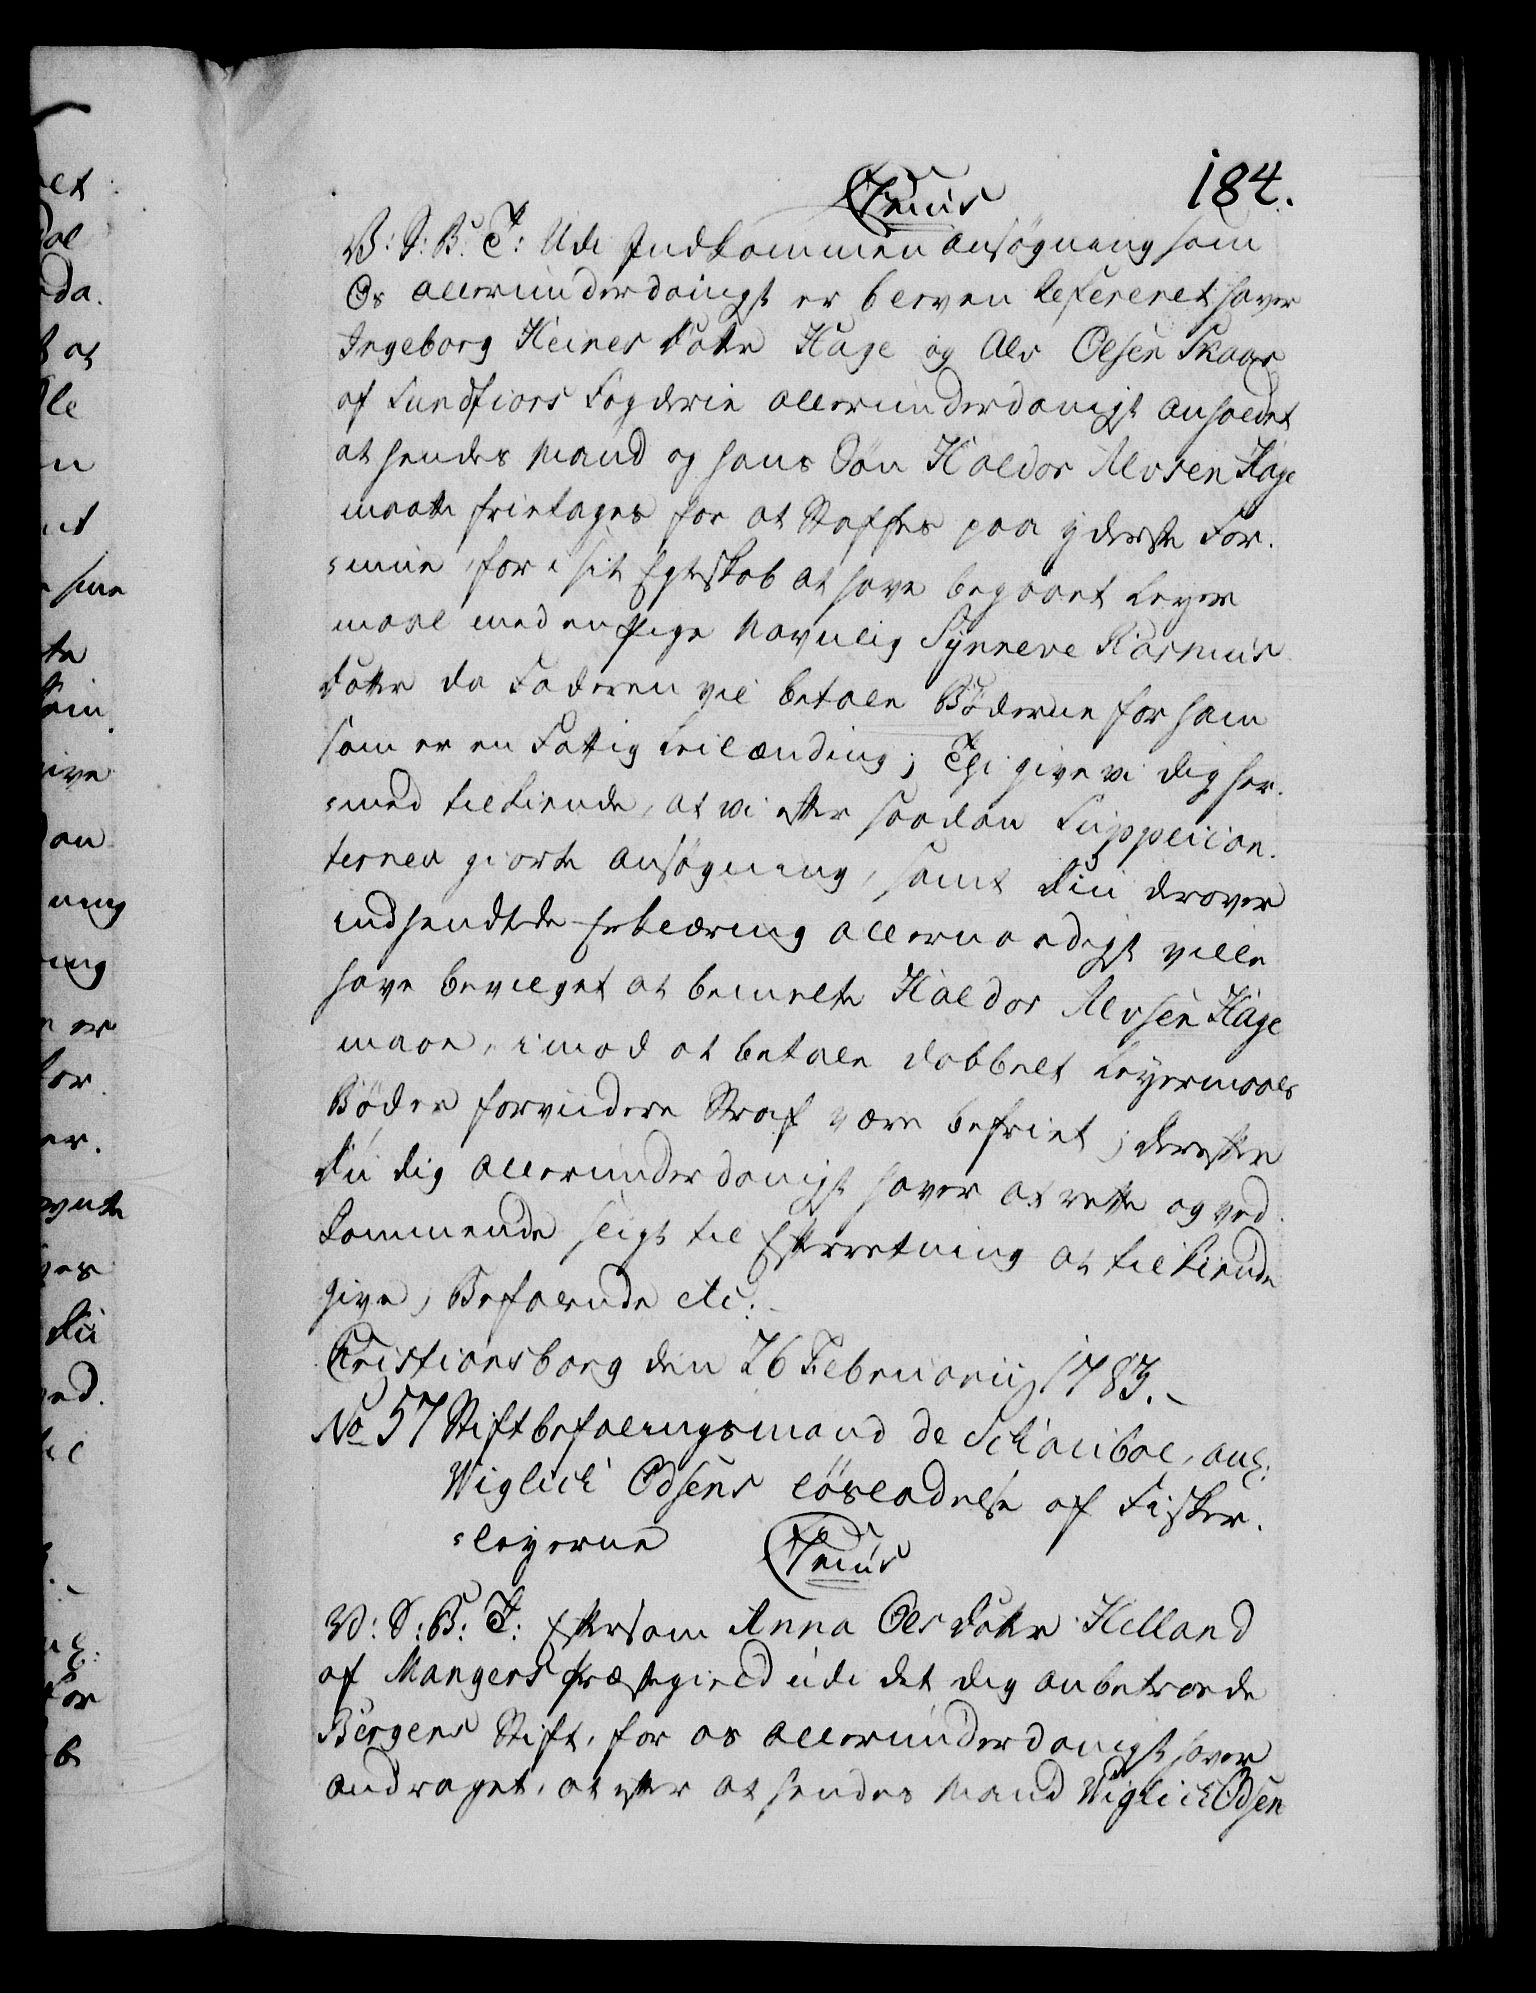 184.
C7mus
V: S: B: T: Udi Indkommen ansøgning som
Os allerunderdanigst er bleven Refereret haver
Ingeborg Heinesdatter Hage og Alv Olsen Skaar
af Sundfiors Fogderie allerunderdanigst anholdet
at hendes Mand og hans Søn Haldor Alvsen Hage
maatte fritages for at Straffes paa yderste For-
-mue, for i sit Egteskab at have begaaet Leyer
maal med en Pige Navnlig Synneve Rasmus
datter da Faderen vil betale Bøderne for ham
som er en Fattig Leilænding; Thi give vi dig her-
-med tilkiende, at vi efter saadan Supplican-
ternes giorte ansøgning, samt Din derover
indsendtede Erklæring allernaadigst ville
have bevilget at bemelte Haldor Alvsen Hage
maae, imod at betale dobbelt Leyermaals
Bøder for videre Straf være befriet; derefter
Du dig allerunderdanigst haver at rette og ved-
kommende sligt til Efterretning at tilkiende
give, Befalende etc:
Cristiansborg den 26 Februarii 1783.
No 57 Stiftbefalingsmand de Schouboe, anl:
Wiglich Odsens løsladelse af Fisker-
-leyerne
C7mus
V: S: B: T: Eftersom Anna Olsdatter Helland
af Mangers Præstegield udi det dig anbetroede
Bergens Stift, for os allerunderdanigst haver
andraget, at efter at hendes Mand Wiglich Odsen